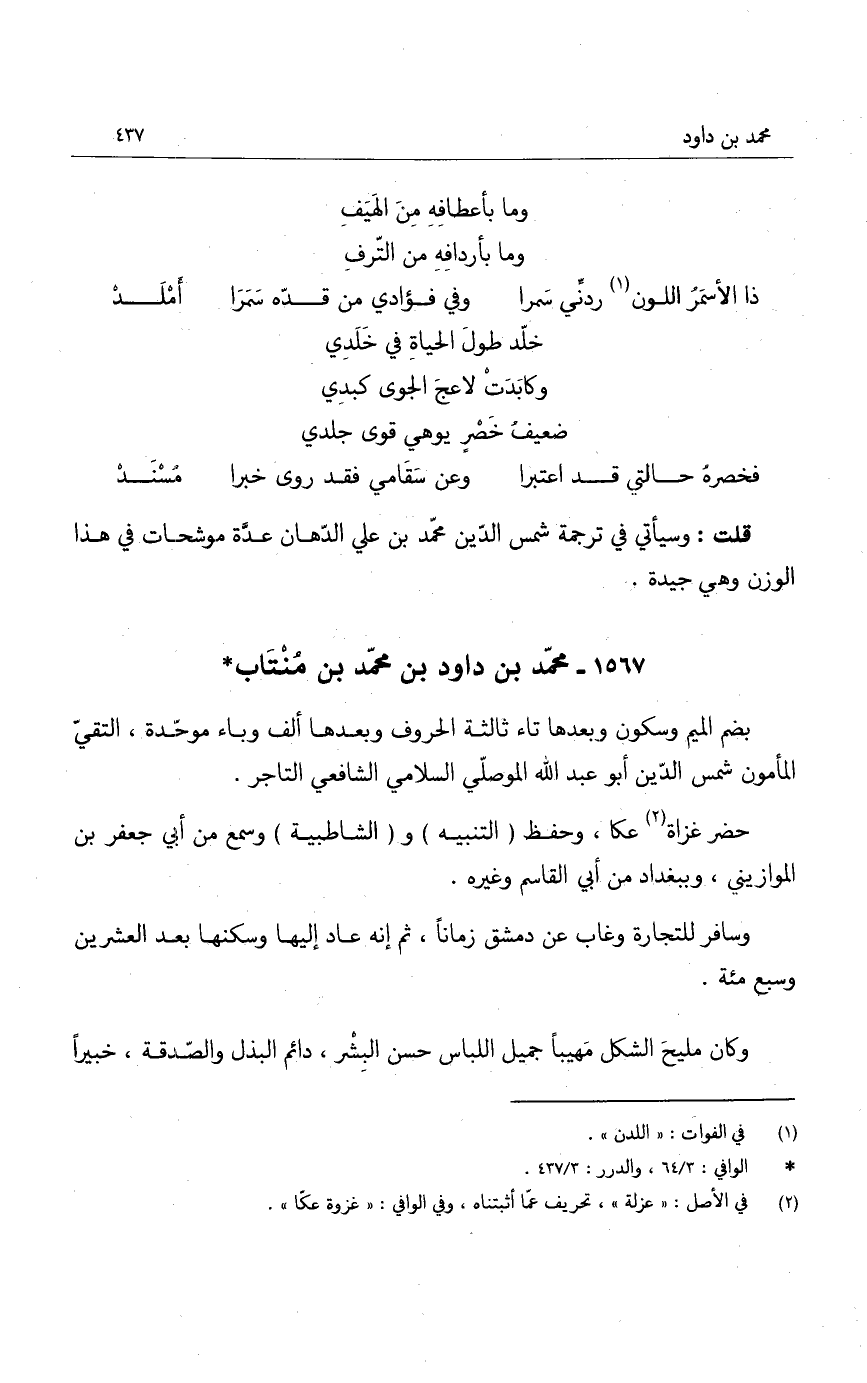 محمد بن داود ٤٣٧
وما بأعطافِهِ مِنَ الهَيَفِ
وما بأردافِهِ من التّرفِ
ذا الأسمَرُ اللون(١) ردنِّي سَمرا وفي فؤادي من قدّه سَمَرَا أَمْلَدْ
خلّد طولَ الحياةِ في خَلَدِي
وكابَدَتْ لاعجَ الجوى كبدِي
ضعيفُ خَصْرٍ يوهي قوى جلدي
فخصرهُ حالتي قد اعتبرا وعن سَقَامي فقد روى خبرا مُسْنَدْ
قلت : وسيأتي في ترجمة شمس الدّين محمّد بن علي الدّهان عدَّة موشحات في هذا
الوزن وهي جيدة .
١٥٦٧ ـ محمّد بن داود بن محمّد بن مُنْتَاب*
بضم الميم وسكون وبعدها تاء ثالثة الحروف وبعدها ألف وباء موحّدة ، التقيّ
المأمون شمس الدّين أبو عبد الله الموصلّي السلامي الشافعي التاجر .
حضر غزاة(٢) عكا ، وحفظ ( التنبيه ) و ( الشاطبية ) وسمع من أبي جعفر بن
الموازيني ، وببغداد من أبي القاسم وغيره .
وسافر للتجارة وغاب عن دمشق زماناً ، ثم إنه عاد إليها وسكنها بعد العشرين
وسبع مئة .
وكان مليحَ الشكل مَهيباً جميل اللباس حسن البِشْر ، دائم البذل والصّدقة ، خبيراً
(١) في الفوات : « اللدن » .
* الوافي : ٦٤/٣ ، والدرر : ٤٣٧/٣ .
(٢) في الأصل : « عزلة » ، تحريف عمّا أثبتناه ، وفي الوافي : « غزوة عكّا » .